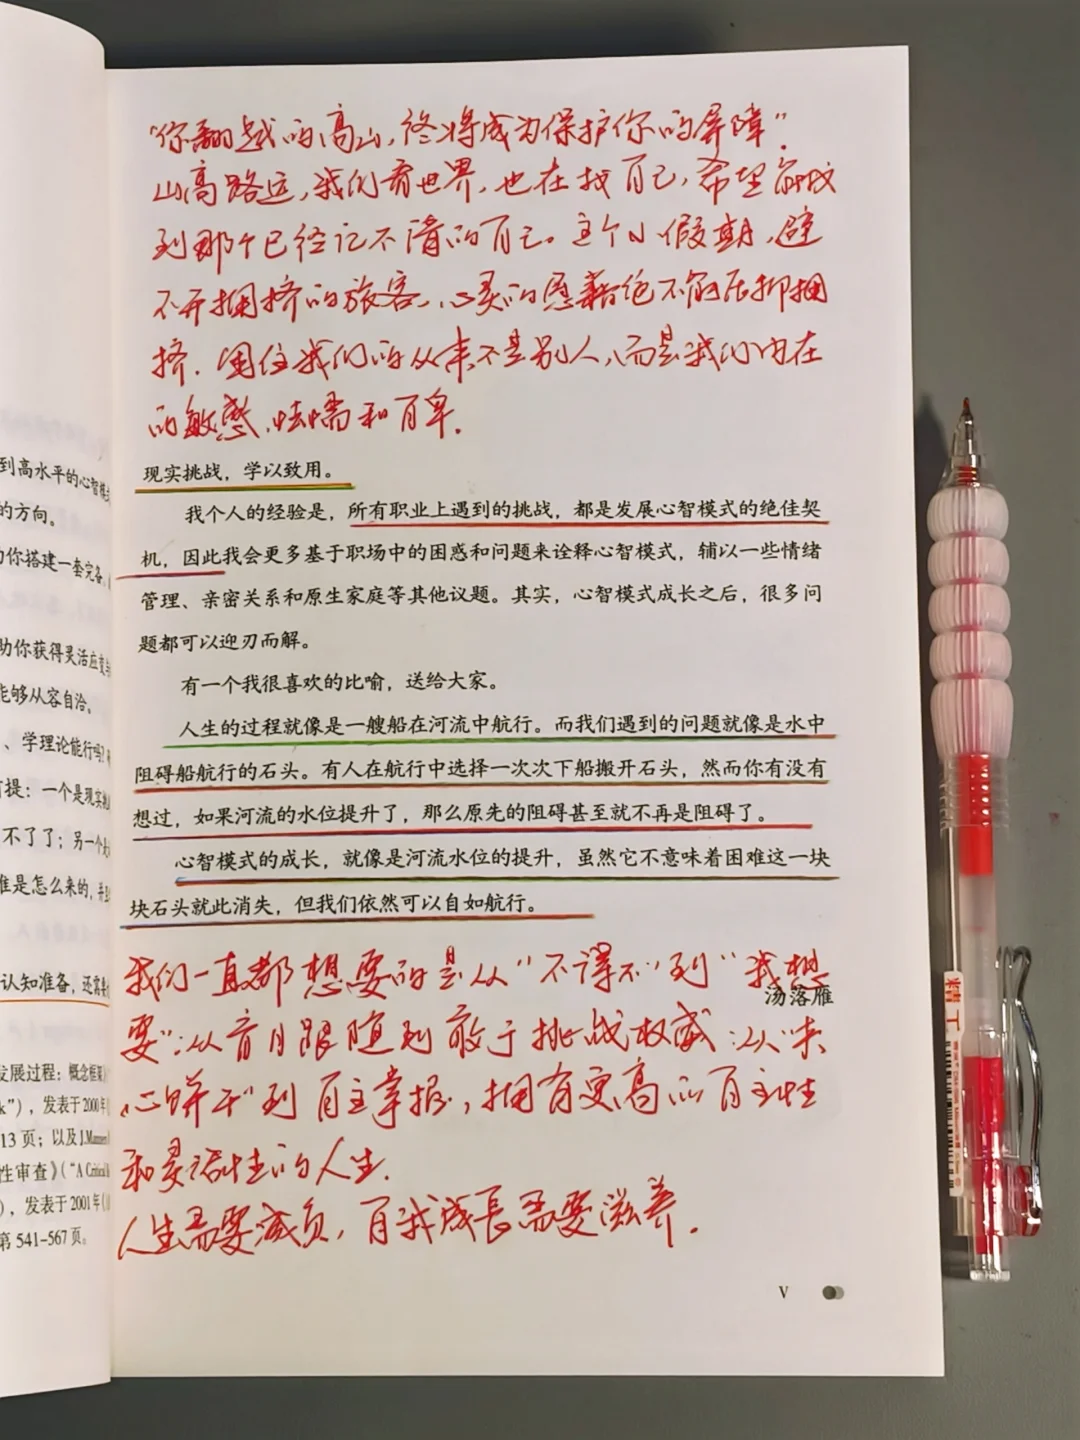 “你翻越的高山，终将成为保护你的屏障”。
山高路远，我们看世界，也在找自己，希望能找
到那个已经记不清的自己。这个小假期，避
不开拥挤的旅客，心灵的慰藉绝不能压抑拥
挤．困住我们的从来不是别人，而是我们内在
的敏感、怯懦和自卑．
现实挑战，学以致用。
我个人的经验是，所有职业上遇到的挑战，都是发展心智模式的绝佳契
机，因此我会更多基于职场中的困惑和问题来诠释心智模式，辅以一些情绪
管理、亲密关系和原生家庭等其他议题。其实，心智模式成长之后，很多问
题都可以迎刃而解。
有一个我很喜欢的比喻，送给大家。
人生的过程就像是一艘船在河流中航行。而我们遇到的问题就像是水中
阻碍船航行的石头。有人在航行中选择一次次下船搬开石头，然而你有没有
想过，如果河流的水位提升了，那么原先的阻碍甚至就不再是阻碍了。
心智模式的成长，就像是河流水位的提升，虽然它不意味着困难这一块
块石头就此消失，但我们依然可以自如航行。
我们一直都想要的是从“不得不”到“我想
汤落雁
要”；从盲目跟随到敢于挑战权威；从“夹
心饼干”到自主掌握，拥有更高的自主性
和灵活性的人生．
人生需要减负，自我成長需要滋养．
V
到高水平的心智模
的方向。
你搭建一套完备
助你获得灵活应变
能够从容自洽。
、学理论能行吗？
提：一个是现实
不了了；另一个
是怎么来的，
认知准备，还需
发展过程：概念框架
k”），发表于2000年
13页；以及J.Manners
性审查》（“A Critical
），发表于2001年
第541-567页。